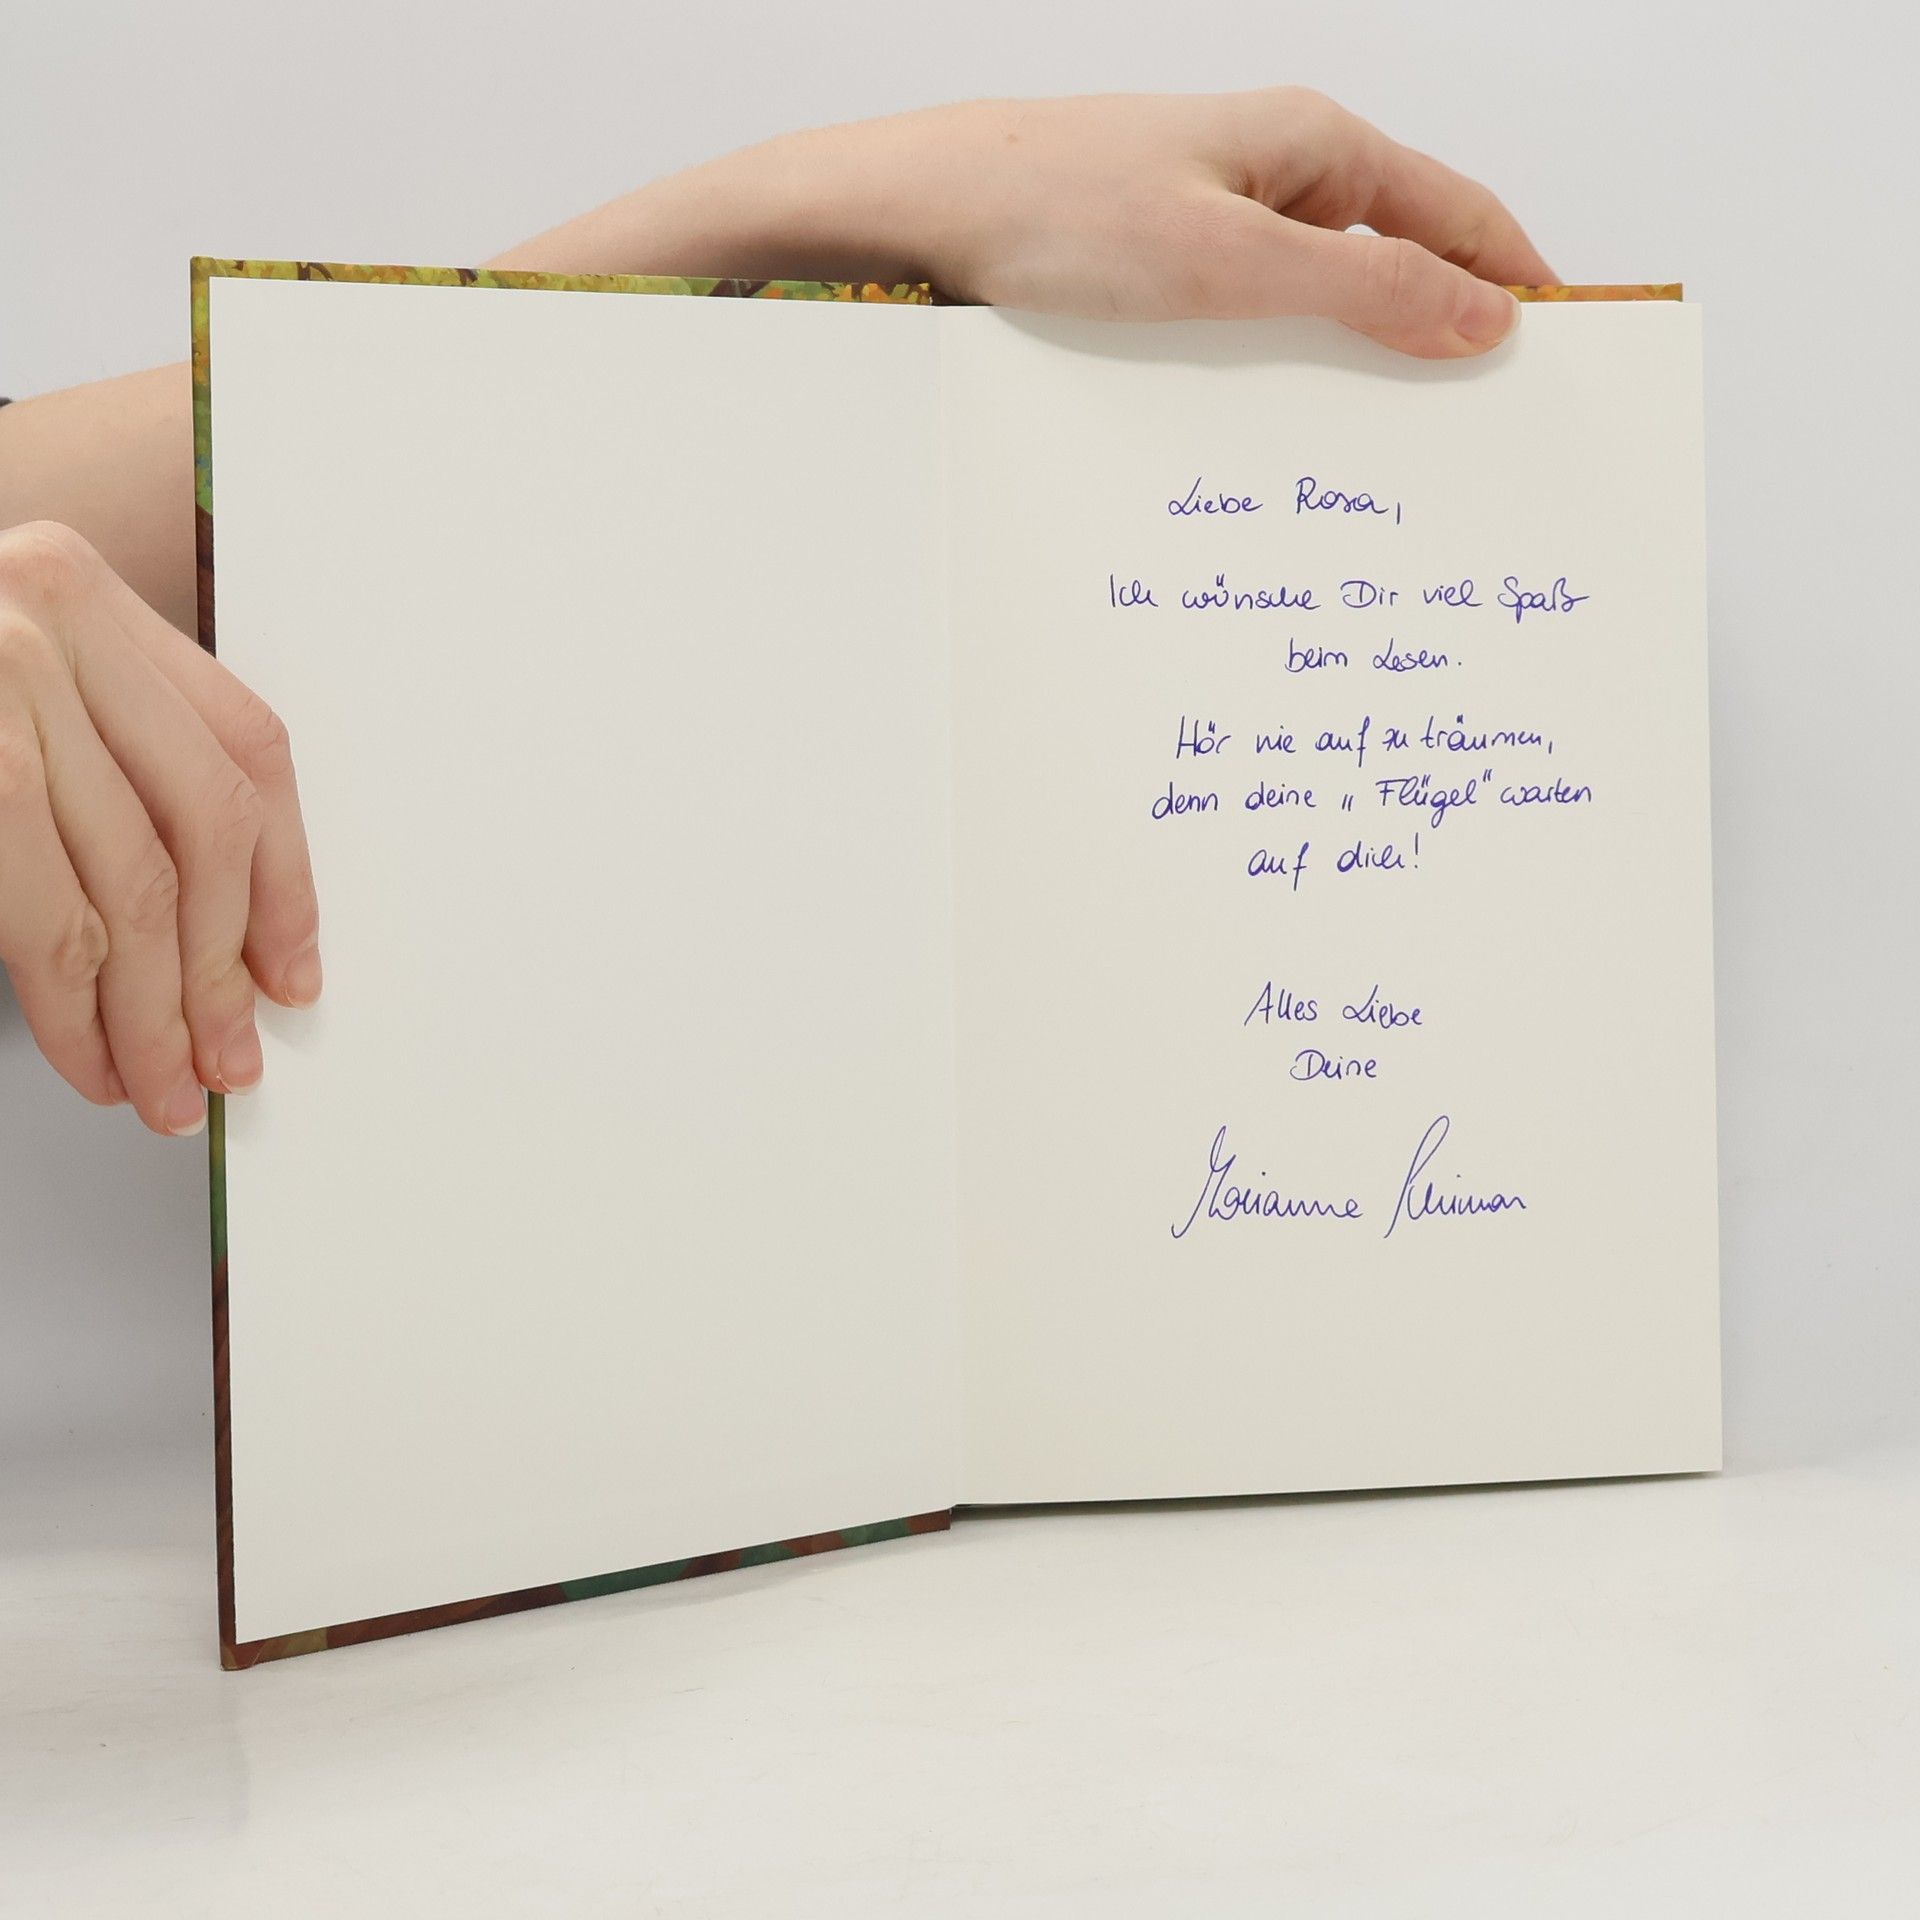 Liebe Rosa,
Ich wünsche Dir viel Spaß
beim Lesen.
Hör nie auf zu träumen,
denn deine „Flügel" warten
auf dich!
Alles Liebe
Deine
Marianne